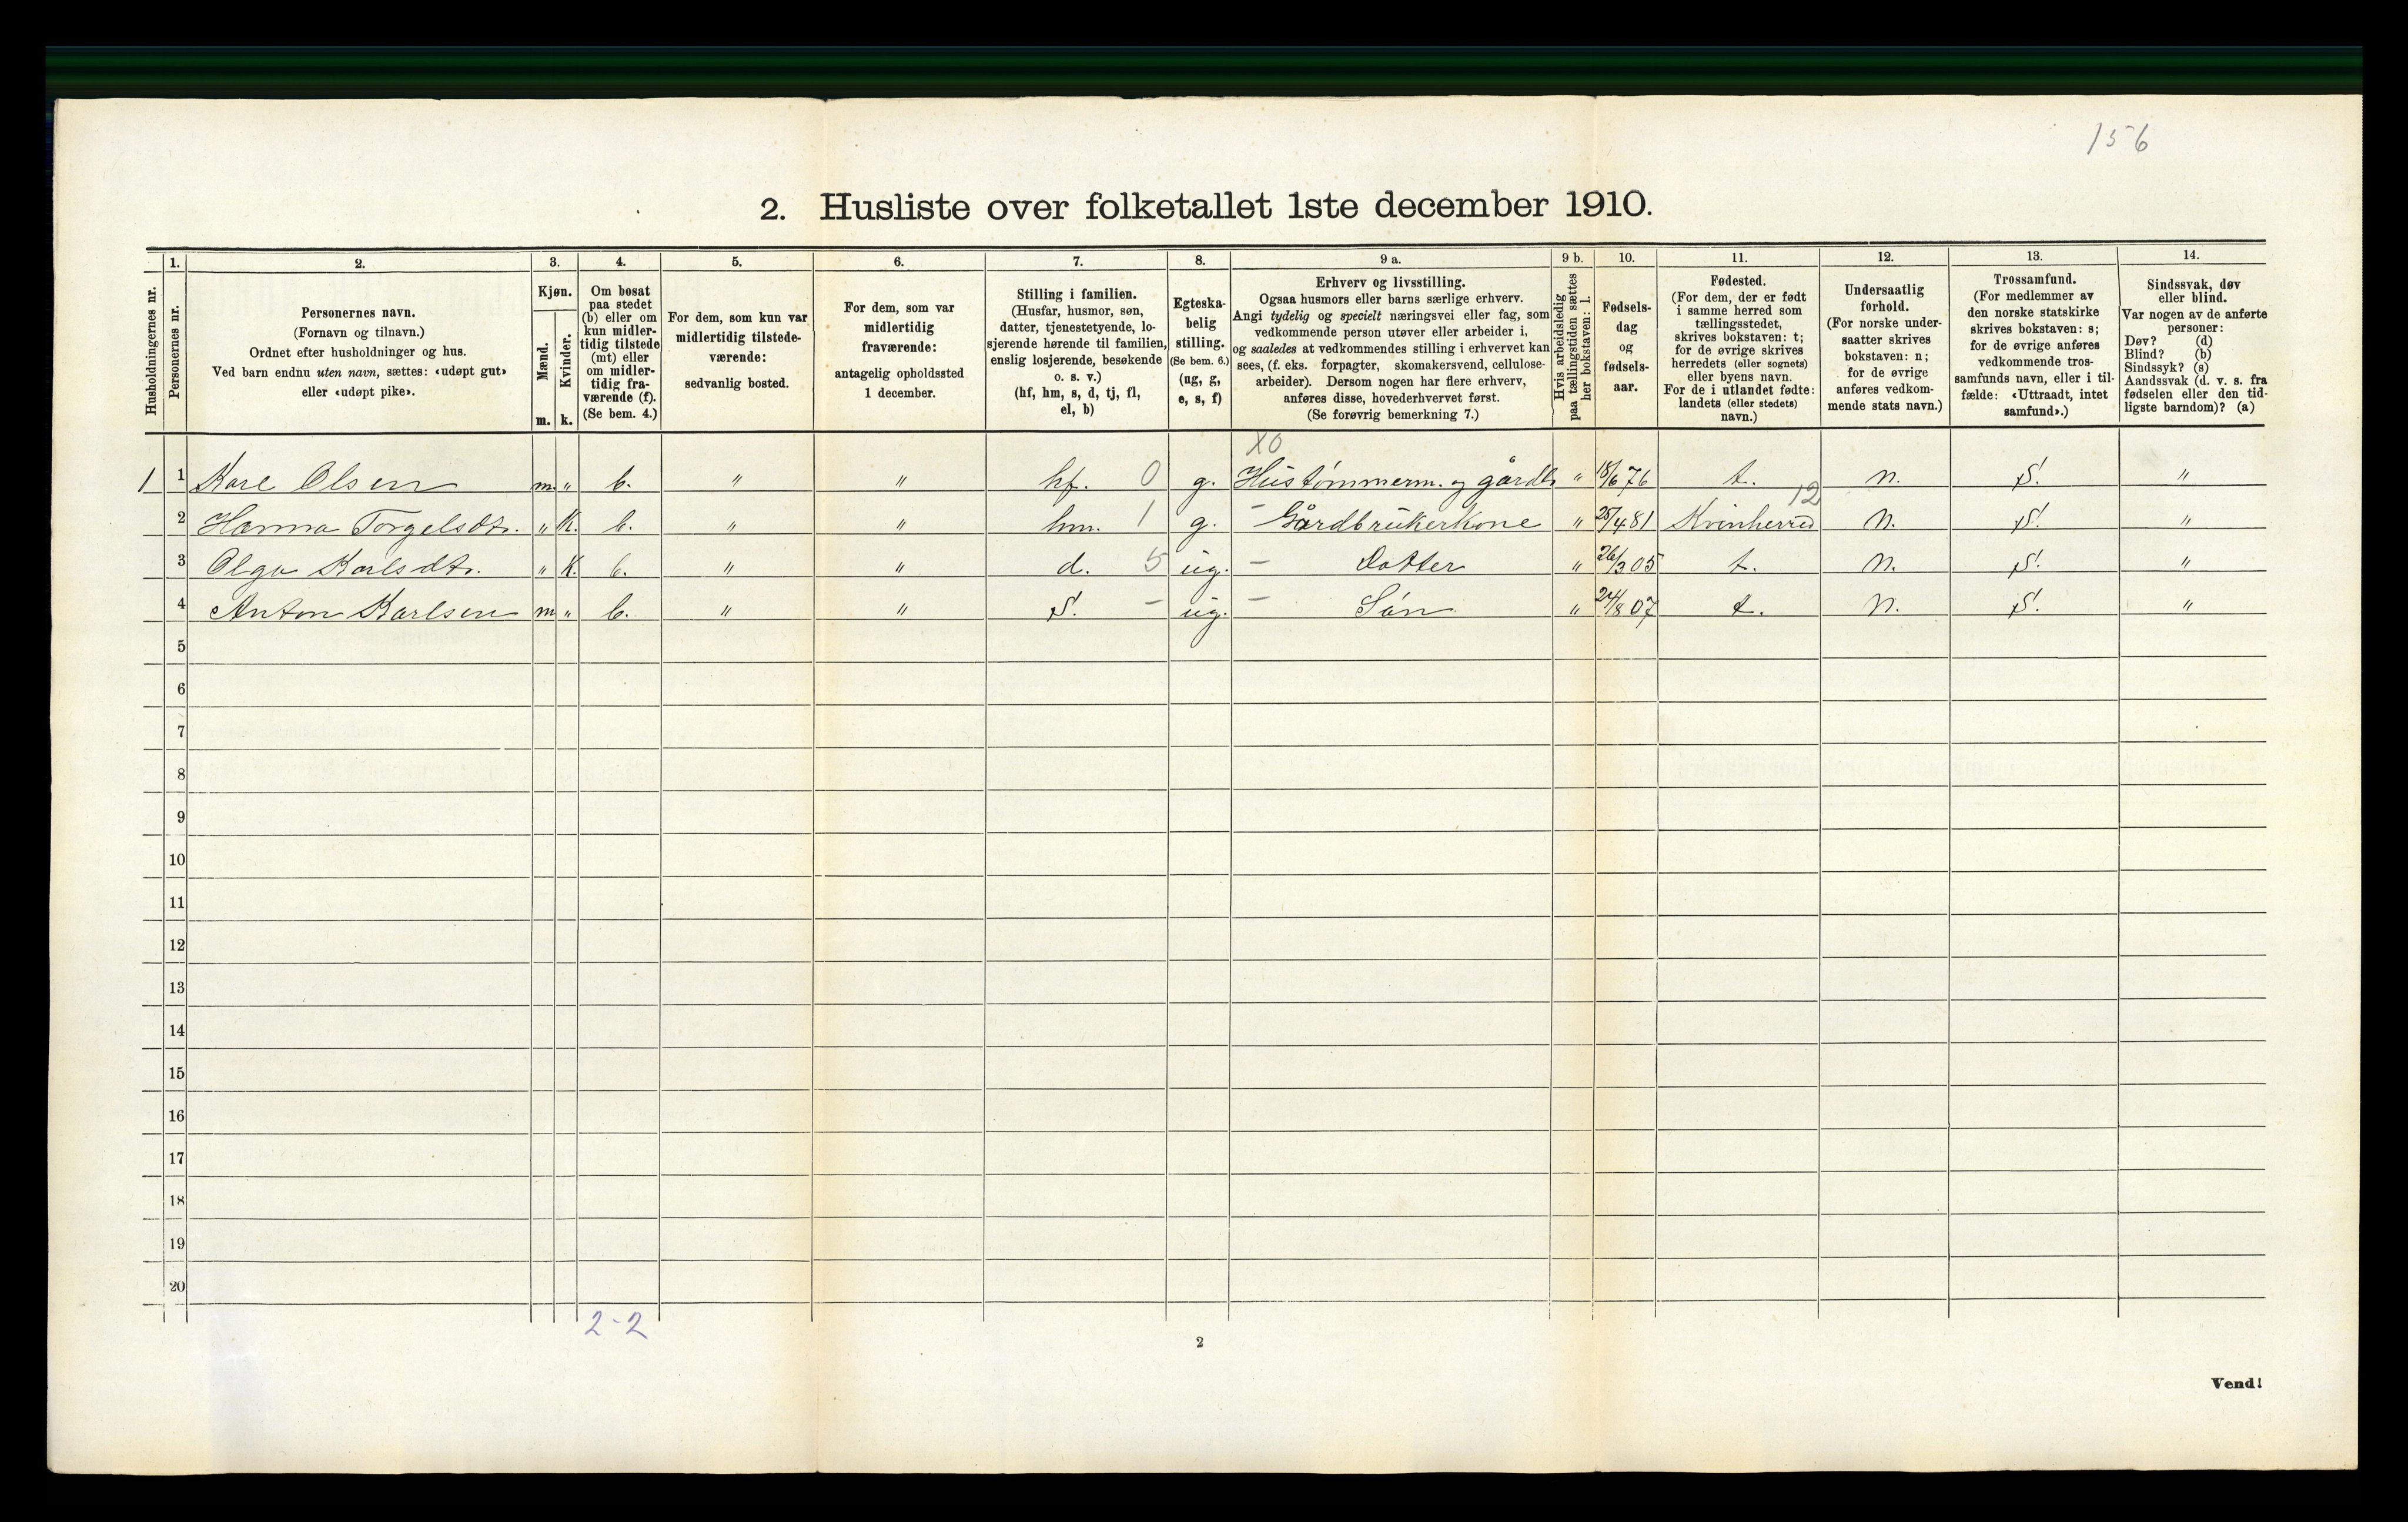 156
2. Husliste over folketallet 1ste december 1910.
Husholdningernes nr.
1.
Personernes nr.
2.
Personernes navn.
(Fornavn og tilnavn.)
Ordnet efter husholdninger og hus.
Ved barn endnu uten navn, sættes: «udøpt gut»
eller «udøpt pike».
3.
Kjøn.
Mænd.
Kvinder.
m. k.
4.
Om bosat
paa stedet
(b) eller om
kun midler-
tidig tilstede
(mt) eller
om midler-
tidig fra-
værende (f).
(Se bem. 4.)
5.
For dem, som kun var
midlertidig tilstede-
værende:
sedvanlig bosted.
6.
For dem, som var
midlertidig
fraværende:
antagelig opholdssted
1 december.
7.
Stilling i familien.
(Husfar, husmor, søn,
datter, tjenestetyende, lo-
sjerende hørende til familien,
enslig losjerende, besøkende
o. s. v.)
(hf, hm, s, d, tj, fl,
el, b)
8.
Egteska-
belig
stilling.
(Se bem. 6.)
(ug, g,
e, s, f)
9 a.
Erhverv og livsstilling.
Ogsaa husmors eller barns særlige erhverv.
Angi tydelig og specielt næringsvei eller fag, som
vedkommende person utøver eller arbeider i,
og saaledes at vedkommendes stilling i erhvervet kan
sees, (f. eks. forpagter, skomakersvend, cellulose-
arbeider). Dersom nogen har flere erhverv,
anføres disse, hovederhvervet først.
(Se forøvrig bemerkning 7.)
9 b.
Hvis arbeidsledig
paa tællingstiden sættes
her bokstaven: l.
10.
Fødsels-
dag
og
fødsels-
aar.
11.
Fødested.
(For dem, der er født
i samme herred som
tællingsstedet,
skrives bokstaven: t;
for de øvrige skrives
herredets (eller sognets)
eller byens navn.
For de i utlandet fødte:
landets (eller stedets)
navn.)
12.
Undersaatlig
forhold.
(For norske under-
saatter skrives
bokstaven: n;
for de øvrige
anføres vedkom-
mende stats navn.)
13.
Trossamfund.
(For medlemmer av
den norske statskirke
skrives bokstaven: s;
for de øvrige anføres
vedkommende tros-
samfunds navn, eller i til-
fælde: «Uttraadt, intet
samfund».)
14.
Sindssvak, døv
eller blind.
Var nogen av de anførte
personer:
Døv? (d)
Blind? (b)
Sindssyk? (s)
Aandssvak (d. v. s. fra
fødselen eller den tid-
ligste barndom)? (a)
X0
1 1 Karl Olsen m. " b. " " hf. 0 g. Hustømmerm. og gårdb. " 18/6 76 t. n. S. "
12
2 Hanna Torgelsdtr. " K. b. " " hm. 1 g. – Gårdbrukerkone " 25/4 81 Kvinherred n. S. "
3 Olga Karlsdtr. " K. b. " " d. 5 ug. – Dotter " 26/3 05 t. n. S. "
4 Anton Karlsen m " b. " " S. – ug. – Sön " 24/8 07 t. n. S. "
5
6
7
8
9
10
11
12
13
14
15
16
17
18
19
20
2-2
2
Vend!